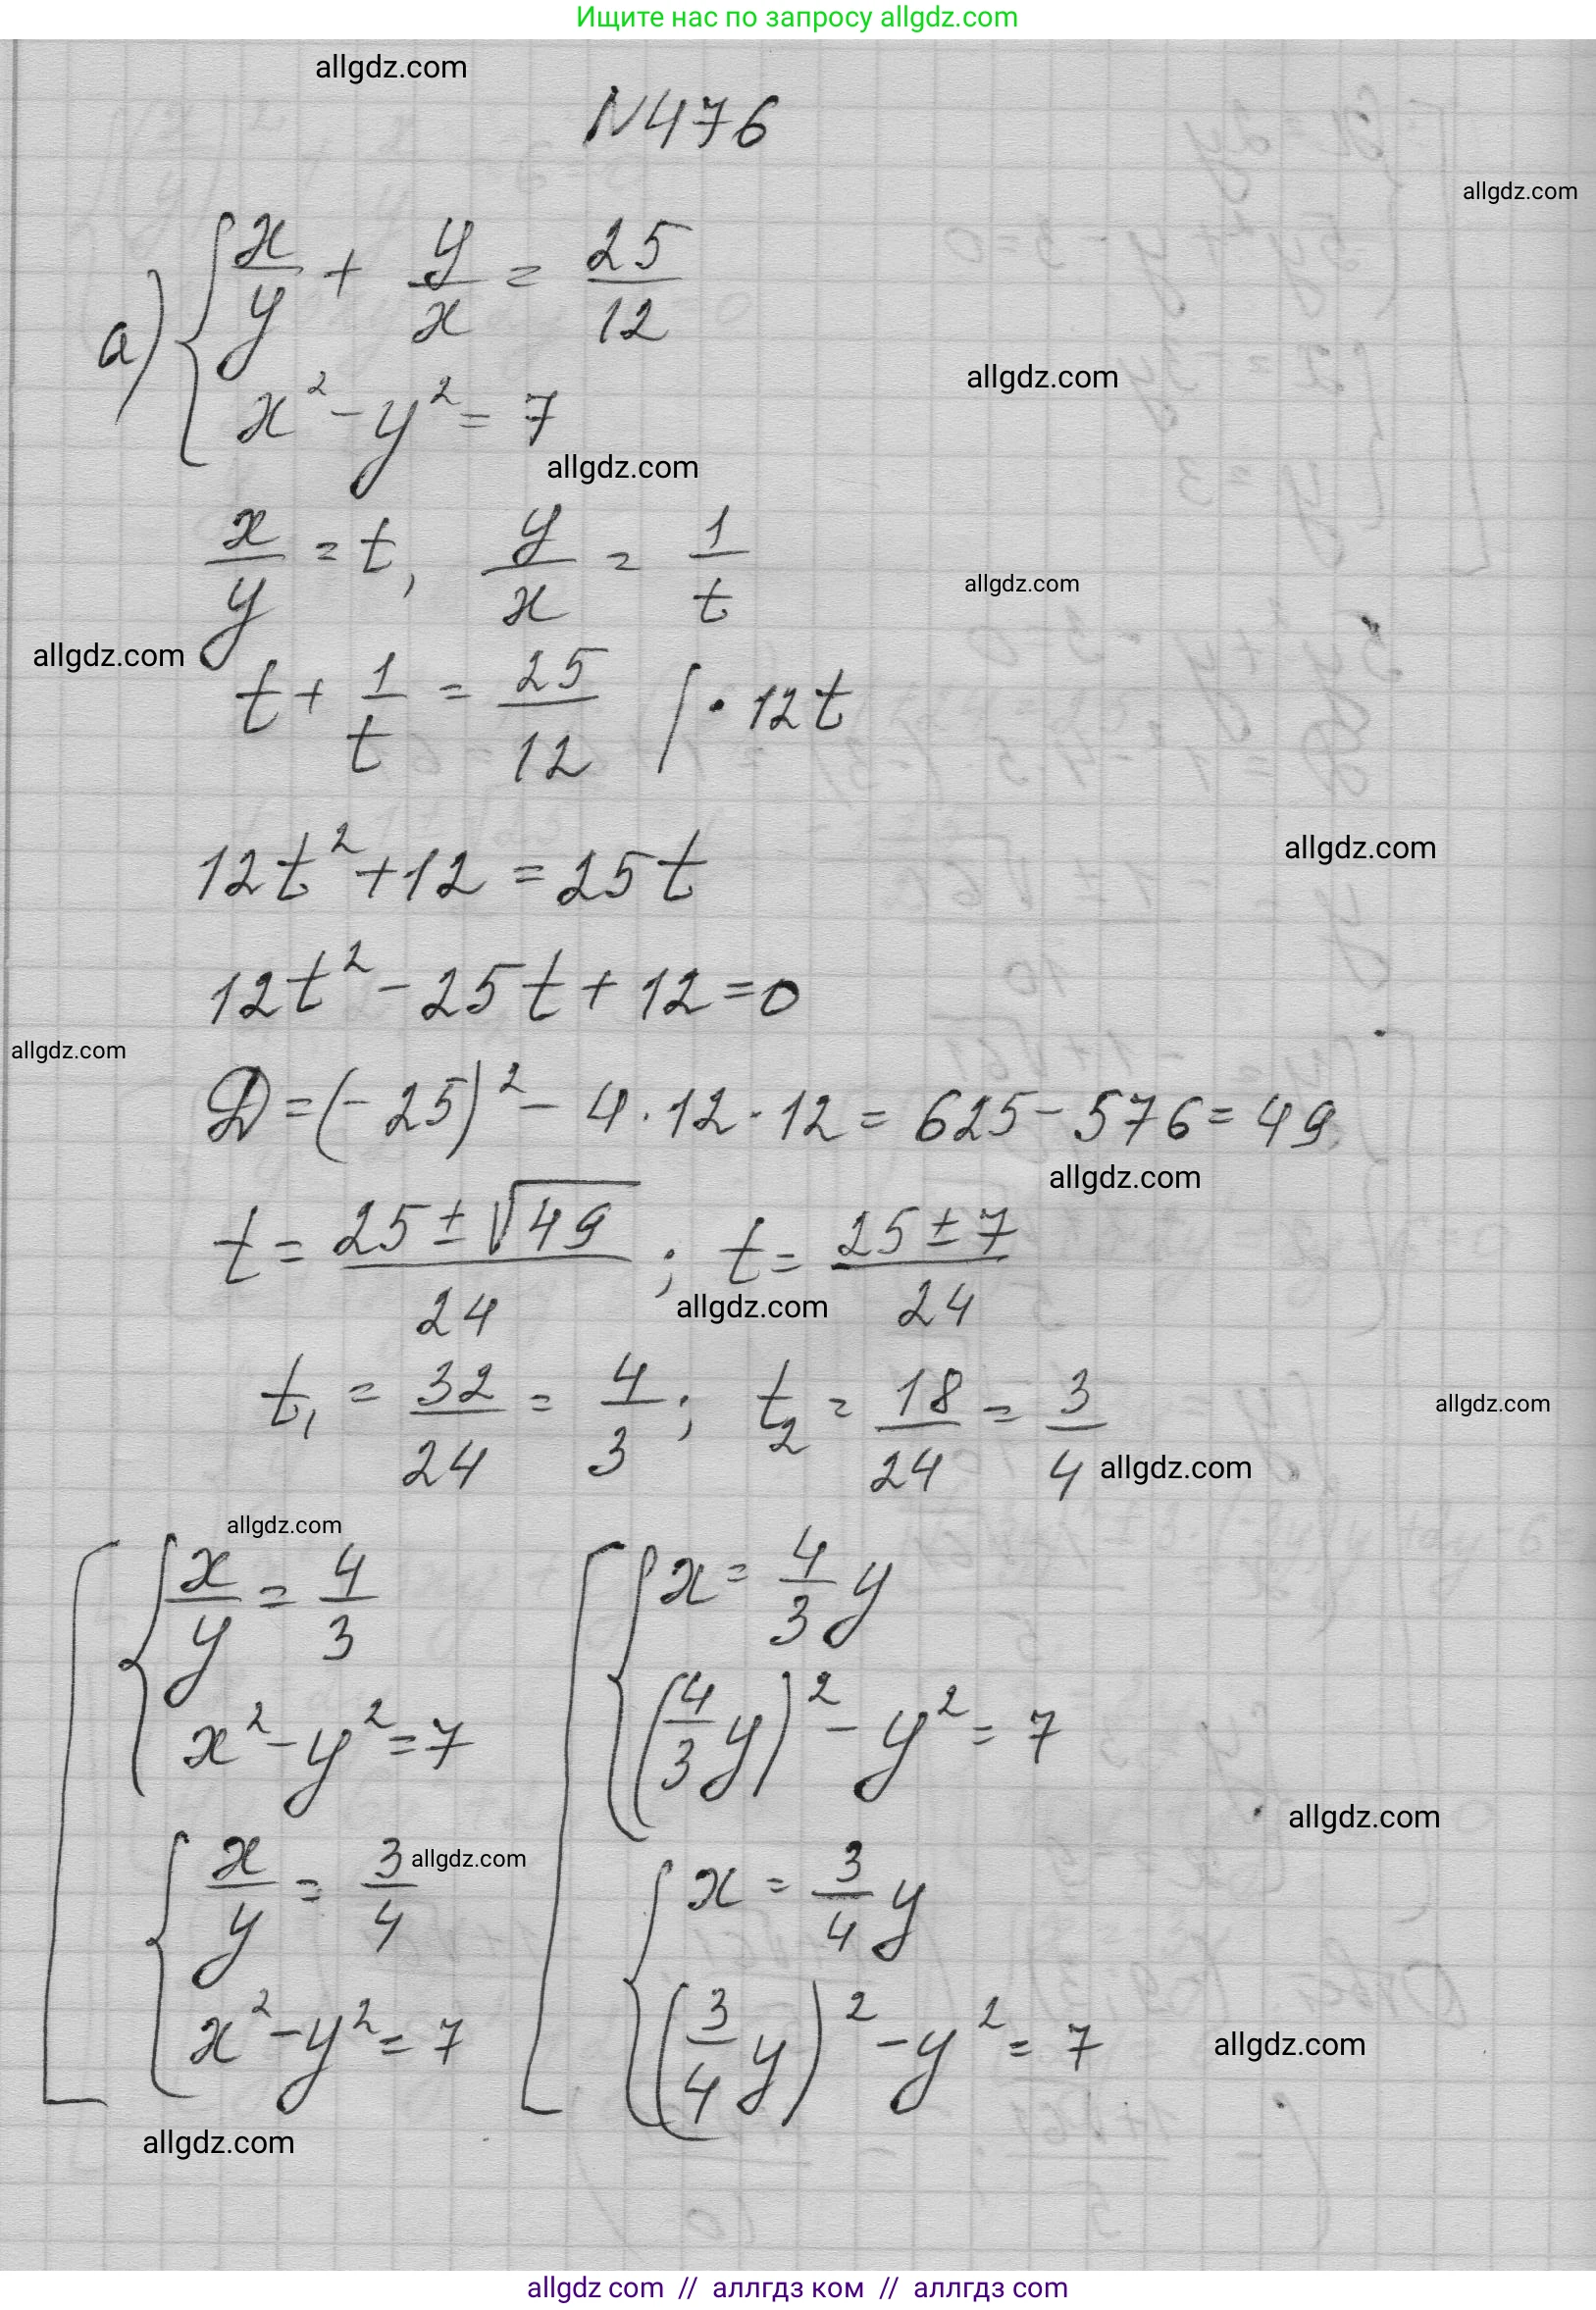 Ищите нас по запросу allgdz.com
allgdz.com
N476
allgdz.com
а) { x/y + y/x = 25/12
x² - y² = 7
allgdz.com
allgdz.com
x/y = t, y/x = 1/t
allgdz.com
allgdz.com
t + 1/t = 25/12 | · 12t
12t² + 12 = 25t
allgdz.com
12t² - 25t + 12 = 0
allgdz.com
D = (-25)² - 4 · 12 · 12 = 625 - 576 = 49
allgdz.com
t = (25 ± √49)/24 ; t = (25 ± 7)/24
allgdz.com
t₁ = 32/24 = 4/3 ; t₂ = 18/24 = 3/4
allgdz.com
allgdz.com
allgdz.com
[ { x/y = 4/3 [ { x = 4/3 y
x² - y² = 7 (4/3 y)² - y² = 7
allgdz.com
{ x/y = 3/4 { x = 3/4 y
allgdz.com
x² - y² = 7 (3/4 y)² - y² = 7
allgdz.com
allgdz.com
allgdz com // аллгдз ком // аллгдз com